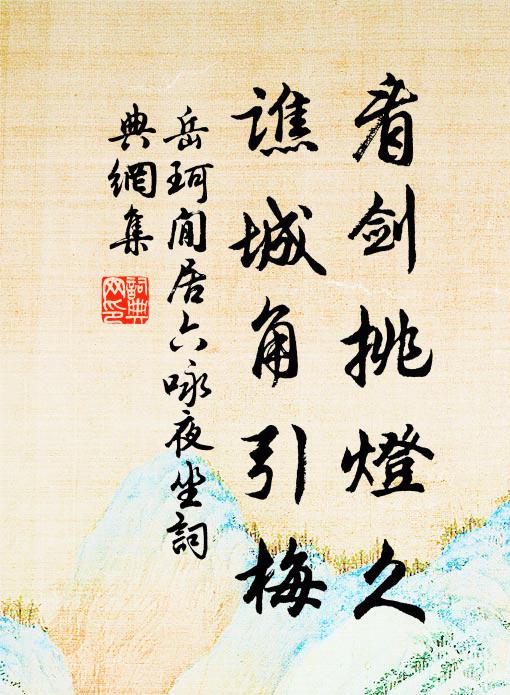 看剑挑燈久
譙城角引梅
岳珂閒居六咏夜坐詞
典網集
詞典網印